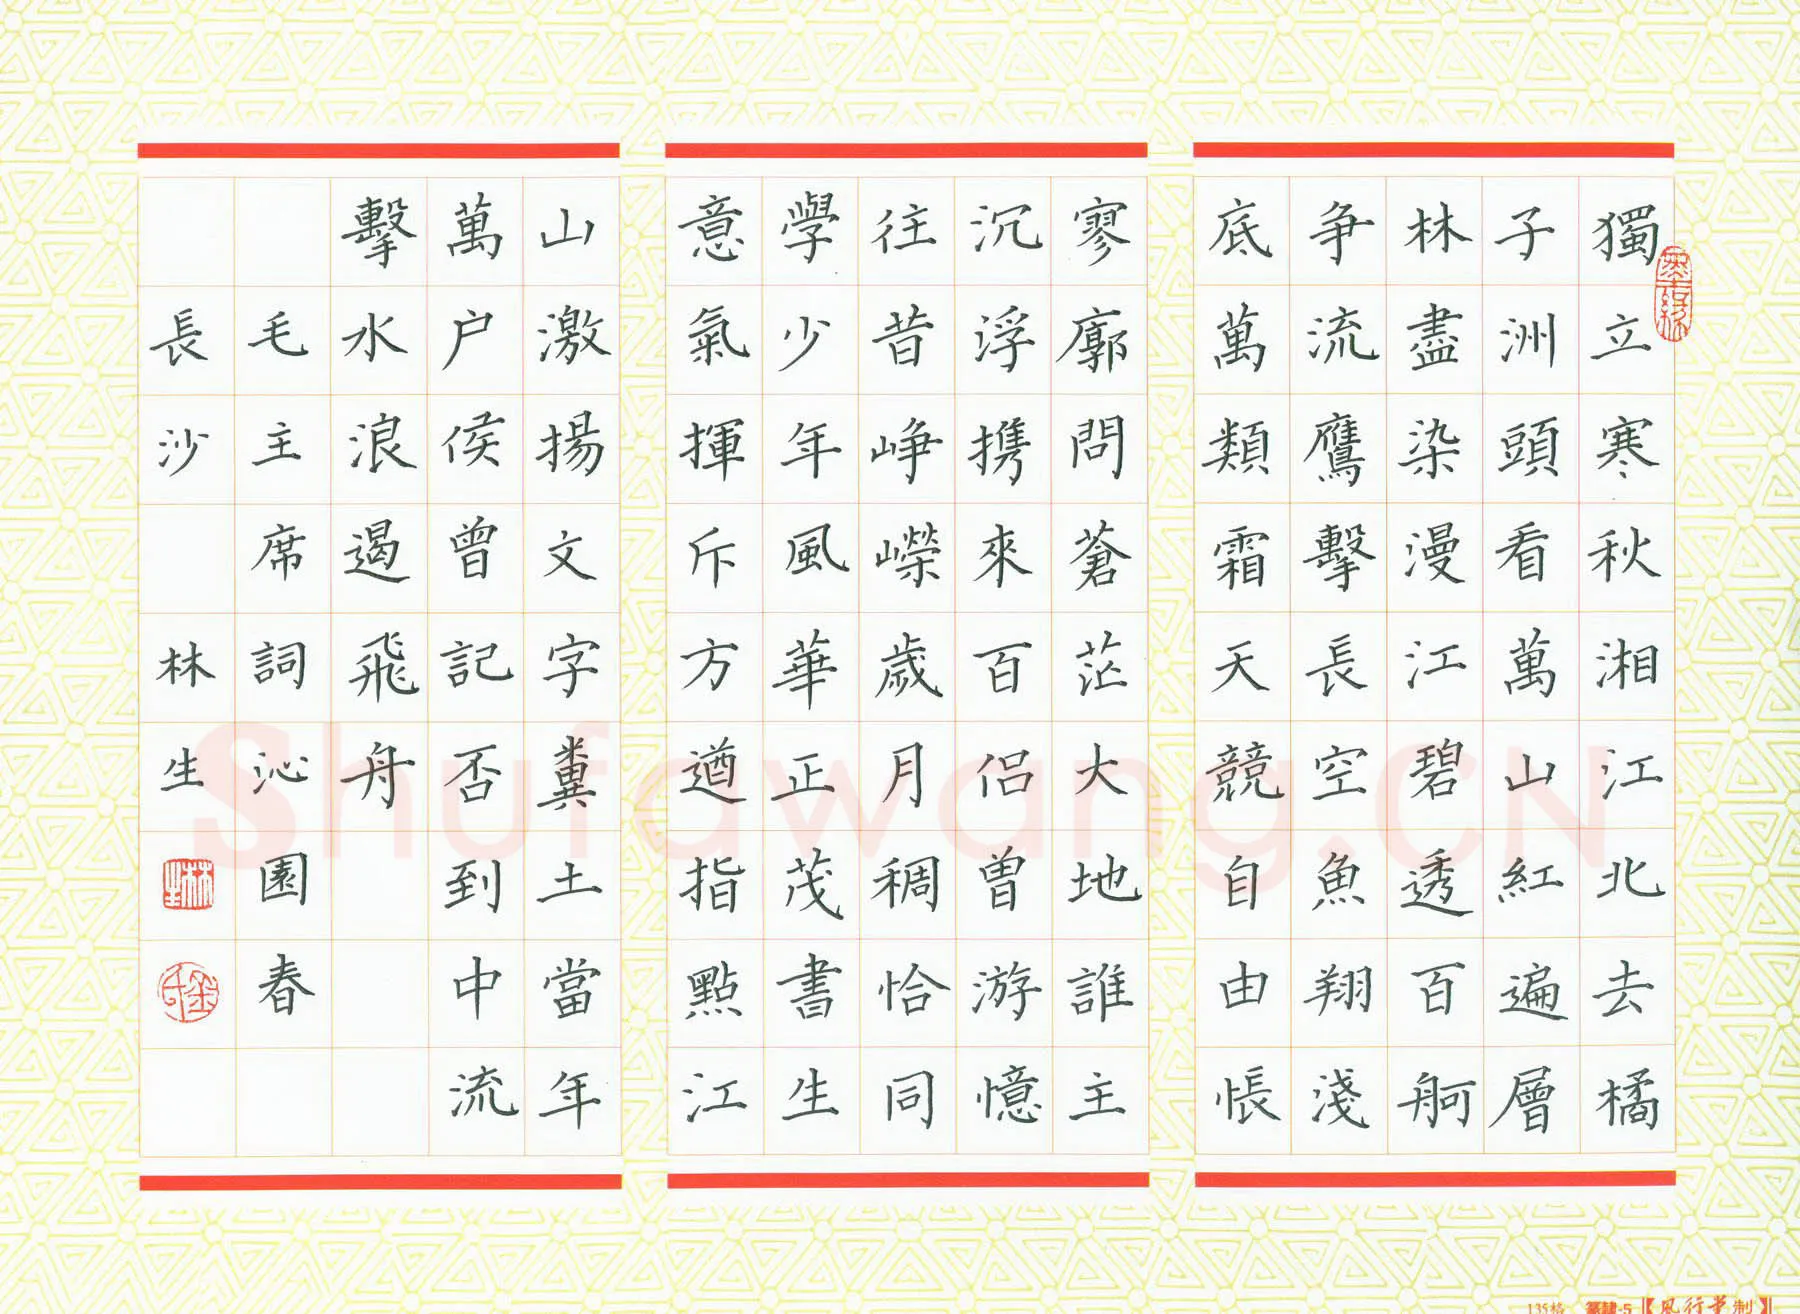 獨立寒秋湘江北去橘
子洲頭看萬山紅遍層
林盡染漫江碧透百舸
争流鷹擊長空魚翔淺
底萬類霜天競自由悵
寥廓問蒼茫大地誰主
沉浮携來百侣曾游憶
往昔峥嶸歲月稠恰同
學少年風華正茂書生
意氣揮斥方遒指點江
山激揚文字糞土當年
萬户侯曾記否到中流
擊水浪遏飛舟
毛主席詞沁園春
長沙 林生
Shufawang.CN
135格 篆隸-5【風行書制】